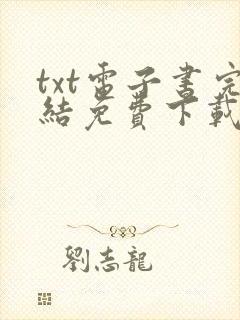 txt電子書完
結免費下載
劉志龍